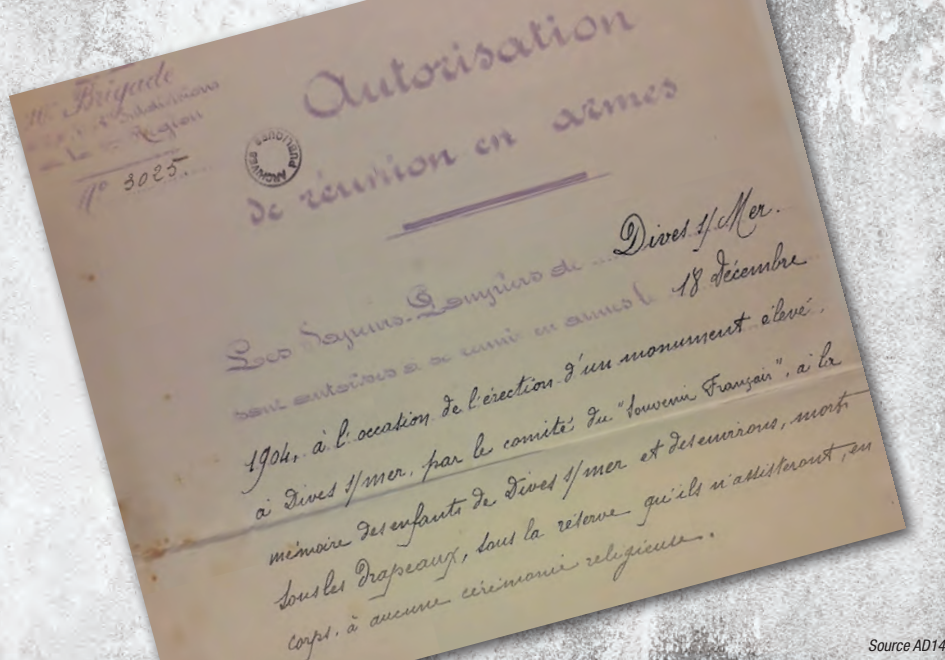 Brigade
Subdivisions
Région
N° 3025.
ARCHIVES PUBLIQUES
Autorisation
de réunion en armes
Les Sapeurs-Pompiers de Dives s/ Mer.
sont autorisés à se réunir en armes le 18 Décembre
1904, à l'occasion de l'érection d'un monument élevé,
à Dives s/mer, par le comité du "Souvenir Français", à la
mémoire des enfants de Dives s/mer et des environs, morts
sous les Drapeaux, sous la réserve qu'ils n'assisteront, en
corps, à aucune cérémonie religieuse.
Source AD14